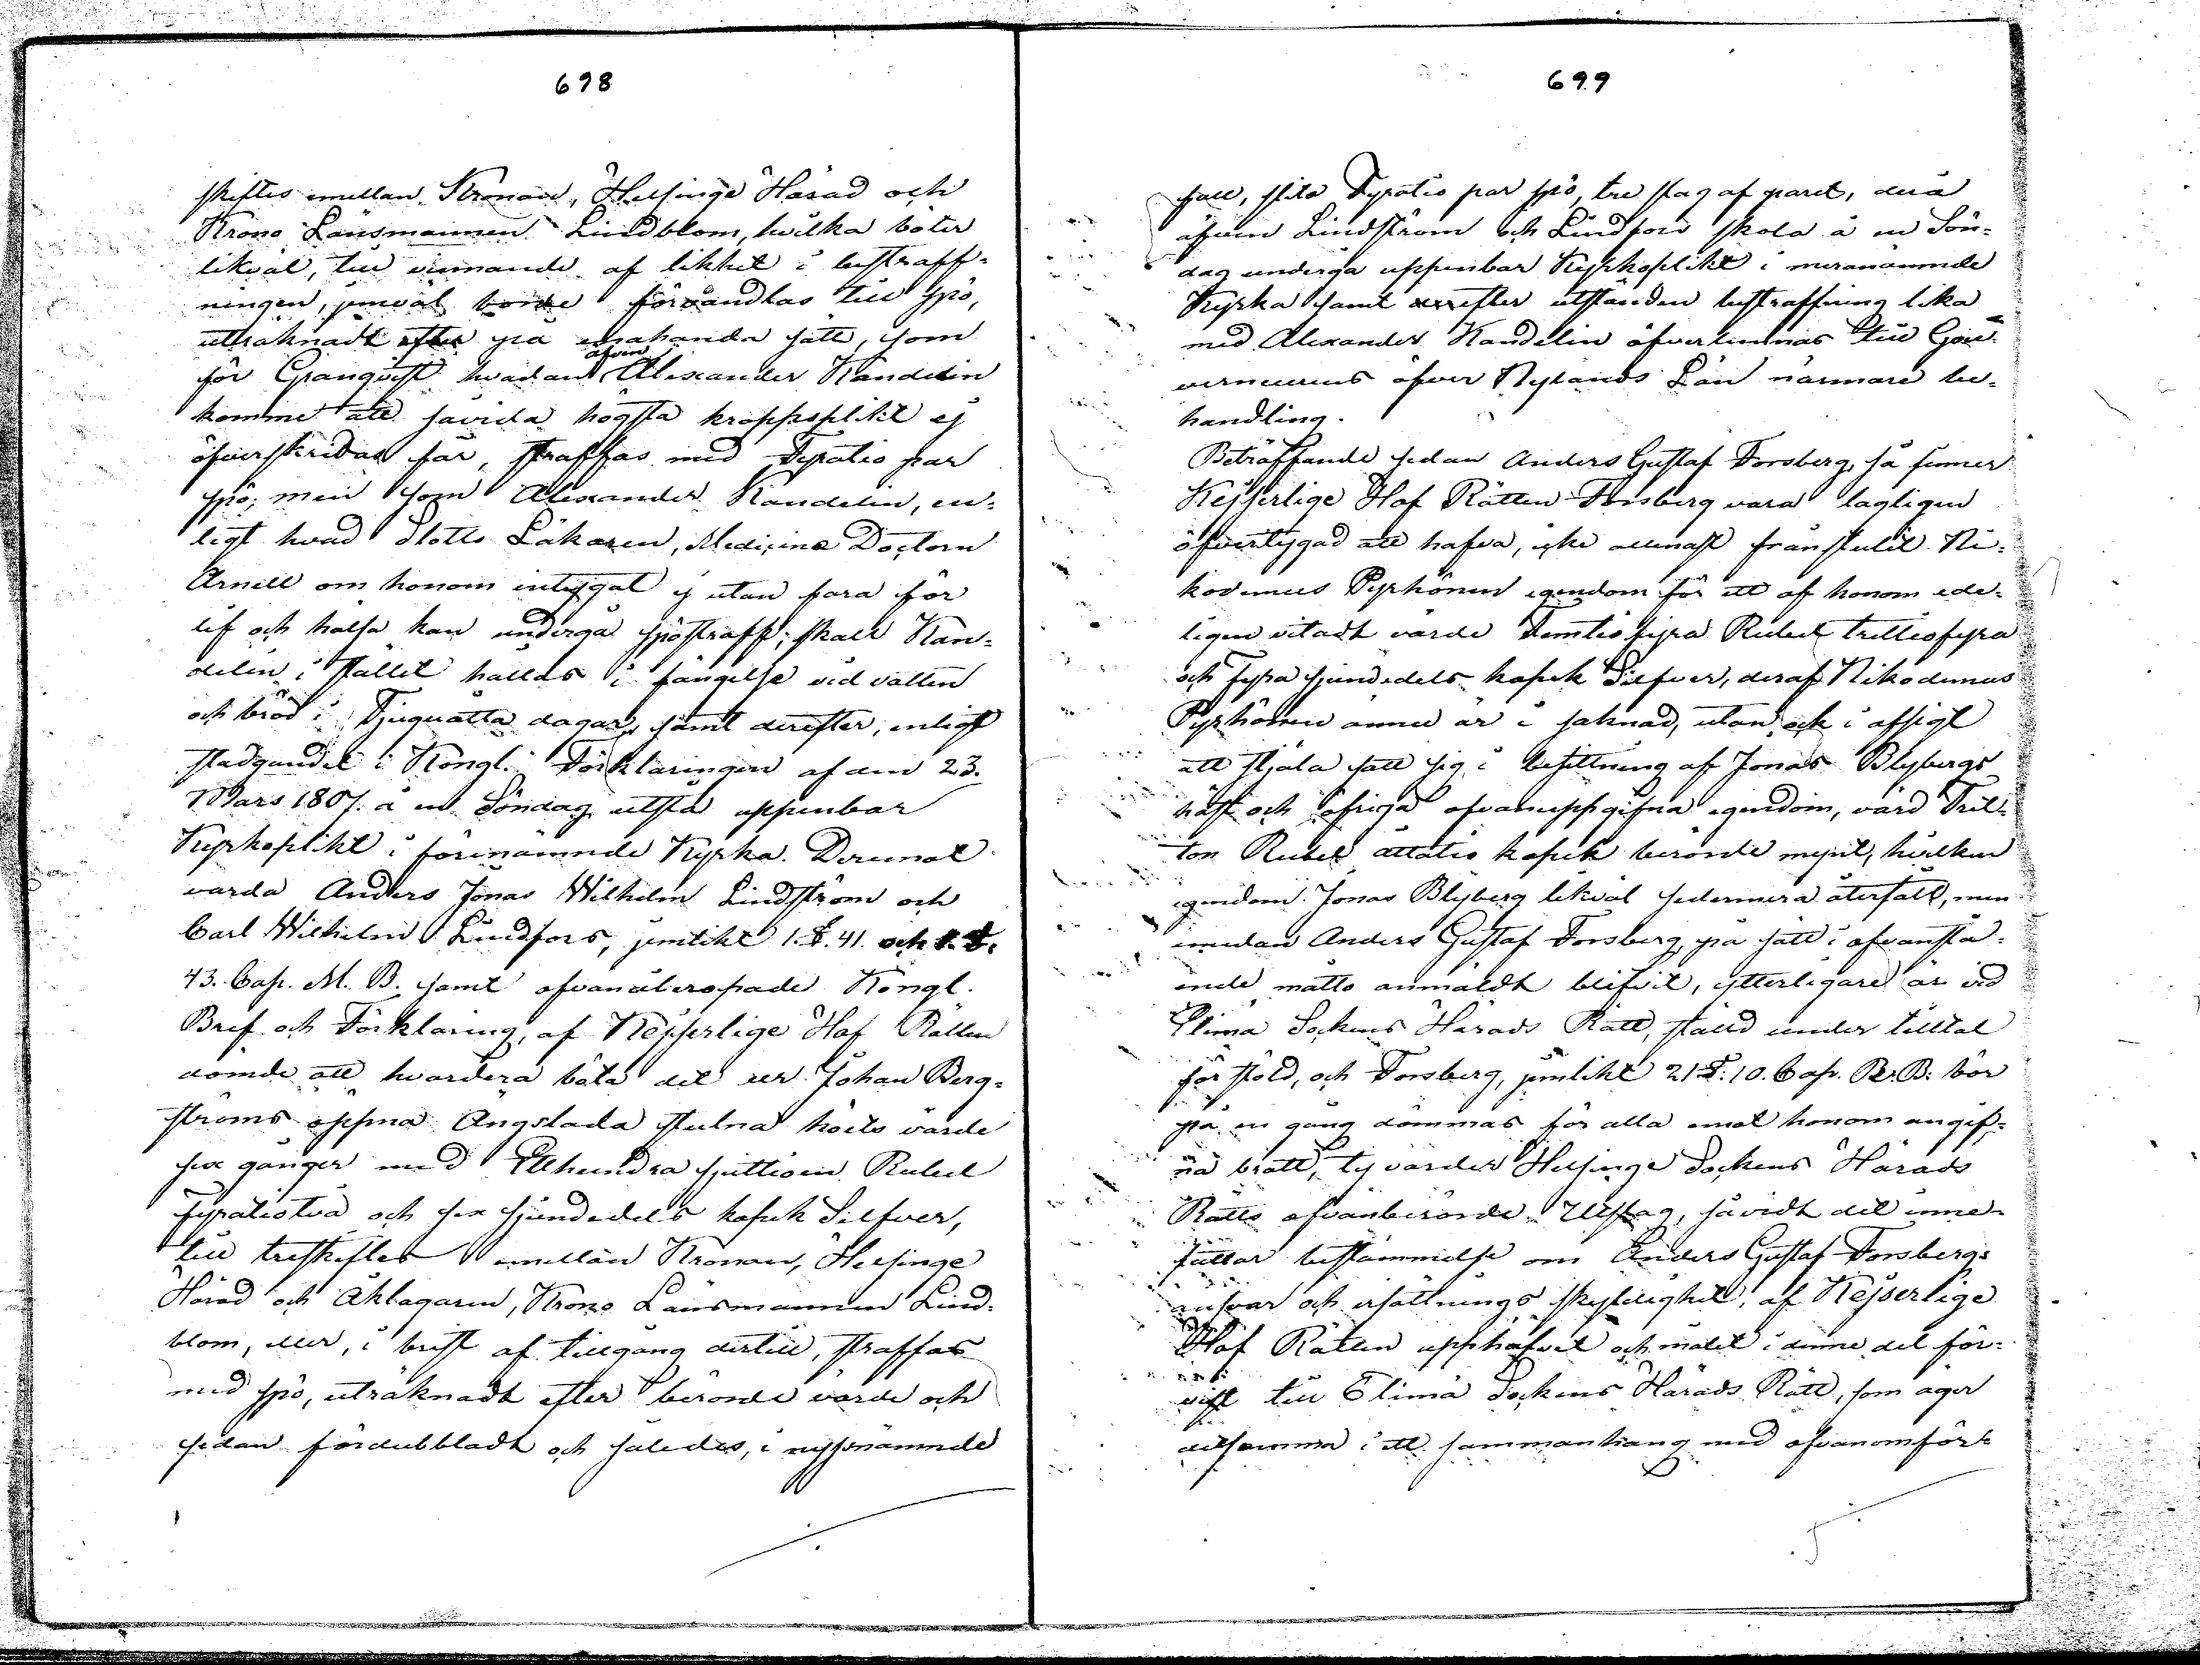 698
skiftes emellan Kronan, Helsinge Härad och
Krono Länsmannen Lindblom, hvilka böter
likväl, till vinnande af likhet i bestraff-
ningen, jemväl borde förvandlas till spö,
uträknadt efter på enahanda sätt, som
för Granqvist hvadan äfven Alexander Kandelin
komme att såvida högsta kroppsplikt ej
öfverskridas får, straffas med Fyratio par
spö; men som Alexander Kandelin, en-
ligt hvad Slotts Läkaren, Medicinæ Doctorn
Arnell om honom intygat ej utan fara för
lif och hälsa kan undergå spöstraff; skall Kan-
delin i stället hållas i fängelse vid vatten
och bröd i Tjuguåtta dagar, samt derefter, enligt
stadgandet i Kongl. Förklaringen af den 23.
Mars 1807. å en Söndag utstå uppenbar
Kyrkoplikt i förenämnde Kyrka. Deremot
varda Anders Jonas Wilhelm Lindström och
Carl Wilhelm Lindfors, jemlikt 1. §. 41. och 1. §.
43. Cap. M. B. samt ofvanåberopade Kongl.
Bref och Förklaring, af Kejserlige Hof Rätten
dömde att hvardera böta det ur Johan Berg-
ströms öppna Ängslada stulna höets värde
sex gånger med Etthundra sjuttioen Rubel
Fyratiotvå och sex sjundedels kopek Silfver,
till treskiftes emellan Kronan, Helsinge
Härad och Åklagaren, Krono Länsmannen Lind-
blom, eller, i brist af tillgång dertill, straffas
med spö, uträknadt efter berörde värde och
sedan fördubbladt och således, i nyssnämnde
699
fall, slita Fyratio par spö, tre slag af paret, dera
äfven Lindström och Lindfors skola å en Sön-
dag undergå uppenbar Kyrkoplikt i meranämnde
Kyrka samt efter utstånden bestraffning lika
med Alexander Kandelin öfverlemnas till Gou-
verneurens öfver Nylands Län närmare be-
handling.
Beträffande sedan Anders Gustaf Forsberg, så finner
Kejserlige Hof Rätten Forsberg vara lagligen
öfvertygad att hafva, icke allenast frånstulit Ni-
kodemus Pyrhönen egendom för ett af honom ede-
ligen vitadt värde Femtiofyra Rubel trettiofyra
och Fyra sjundedels kopek Silfver, deraf Nikodemus
Pyrhönen ännu är i saknad, utan ock i afsigt
att stjäla satt sig i besittning af Jonas Blybergs
häst och öfriga ofvanuppgifna egendom, värd Tret-
ton Rubel åttatio kopek berörde mynt, hvilken
egendom Jonas Blyberg likväl sedermera återfått, men
emedan Anders Gustaf Forsberg, på sätt i ofvanstå-
ende måtto anmäldt blifvit, ytterligare är vid
Elimä Sockens Härads Rätt, ställd under tilltal
för stöld, och Forsberg, jemlikt 21 §. 10. Cap. R. B. bör
på en gång dömmas för alla emot honom angif-
na brott, ty varder Helsinge Sockens Härads
Rätts ofvanberörde Utslag, såvidt det inne-
fattar bestämmelse om Anders Gustaf Forsbergs
ansvar och ersättnings skyldighet, af Kejserlige
Hof Rätten upphäfvet och målet i denne del för-
vist till Elimä Sockens Härads Rätt, som äger
detsamma i ett sammanhang med ofvanomför-